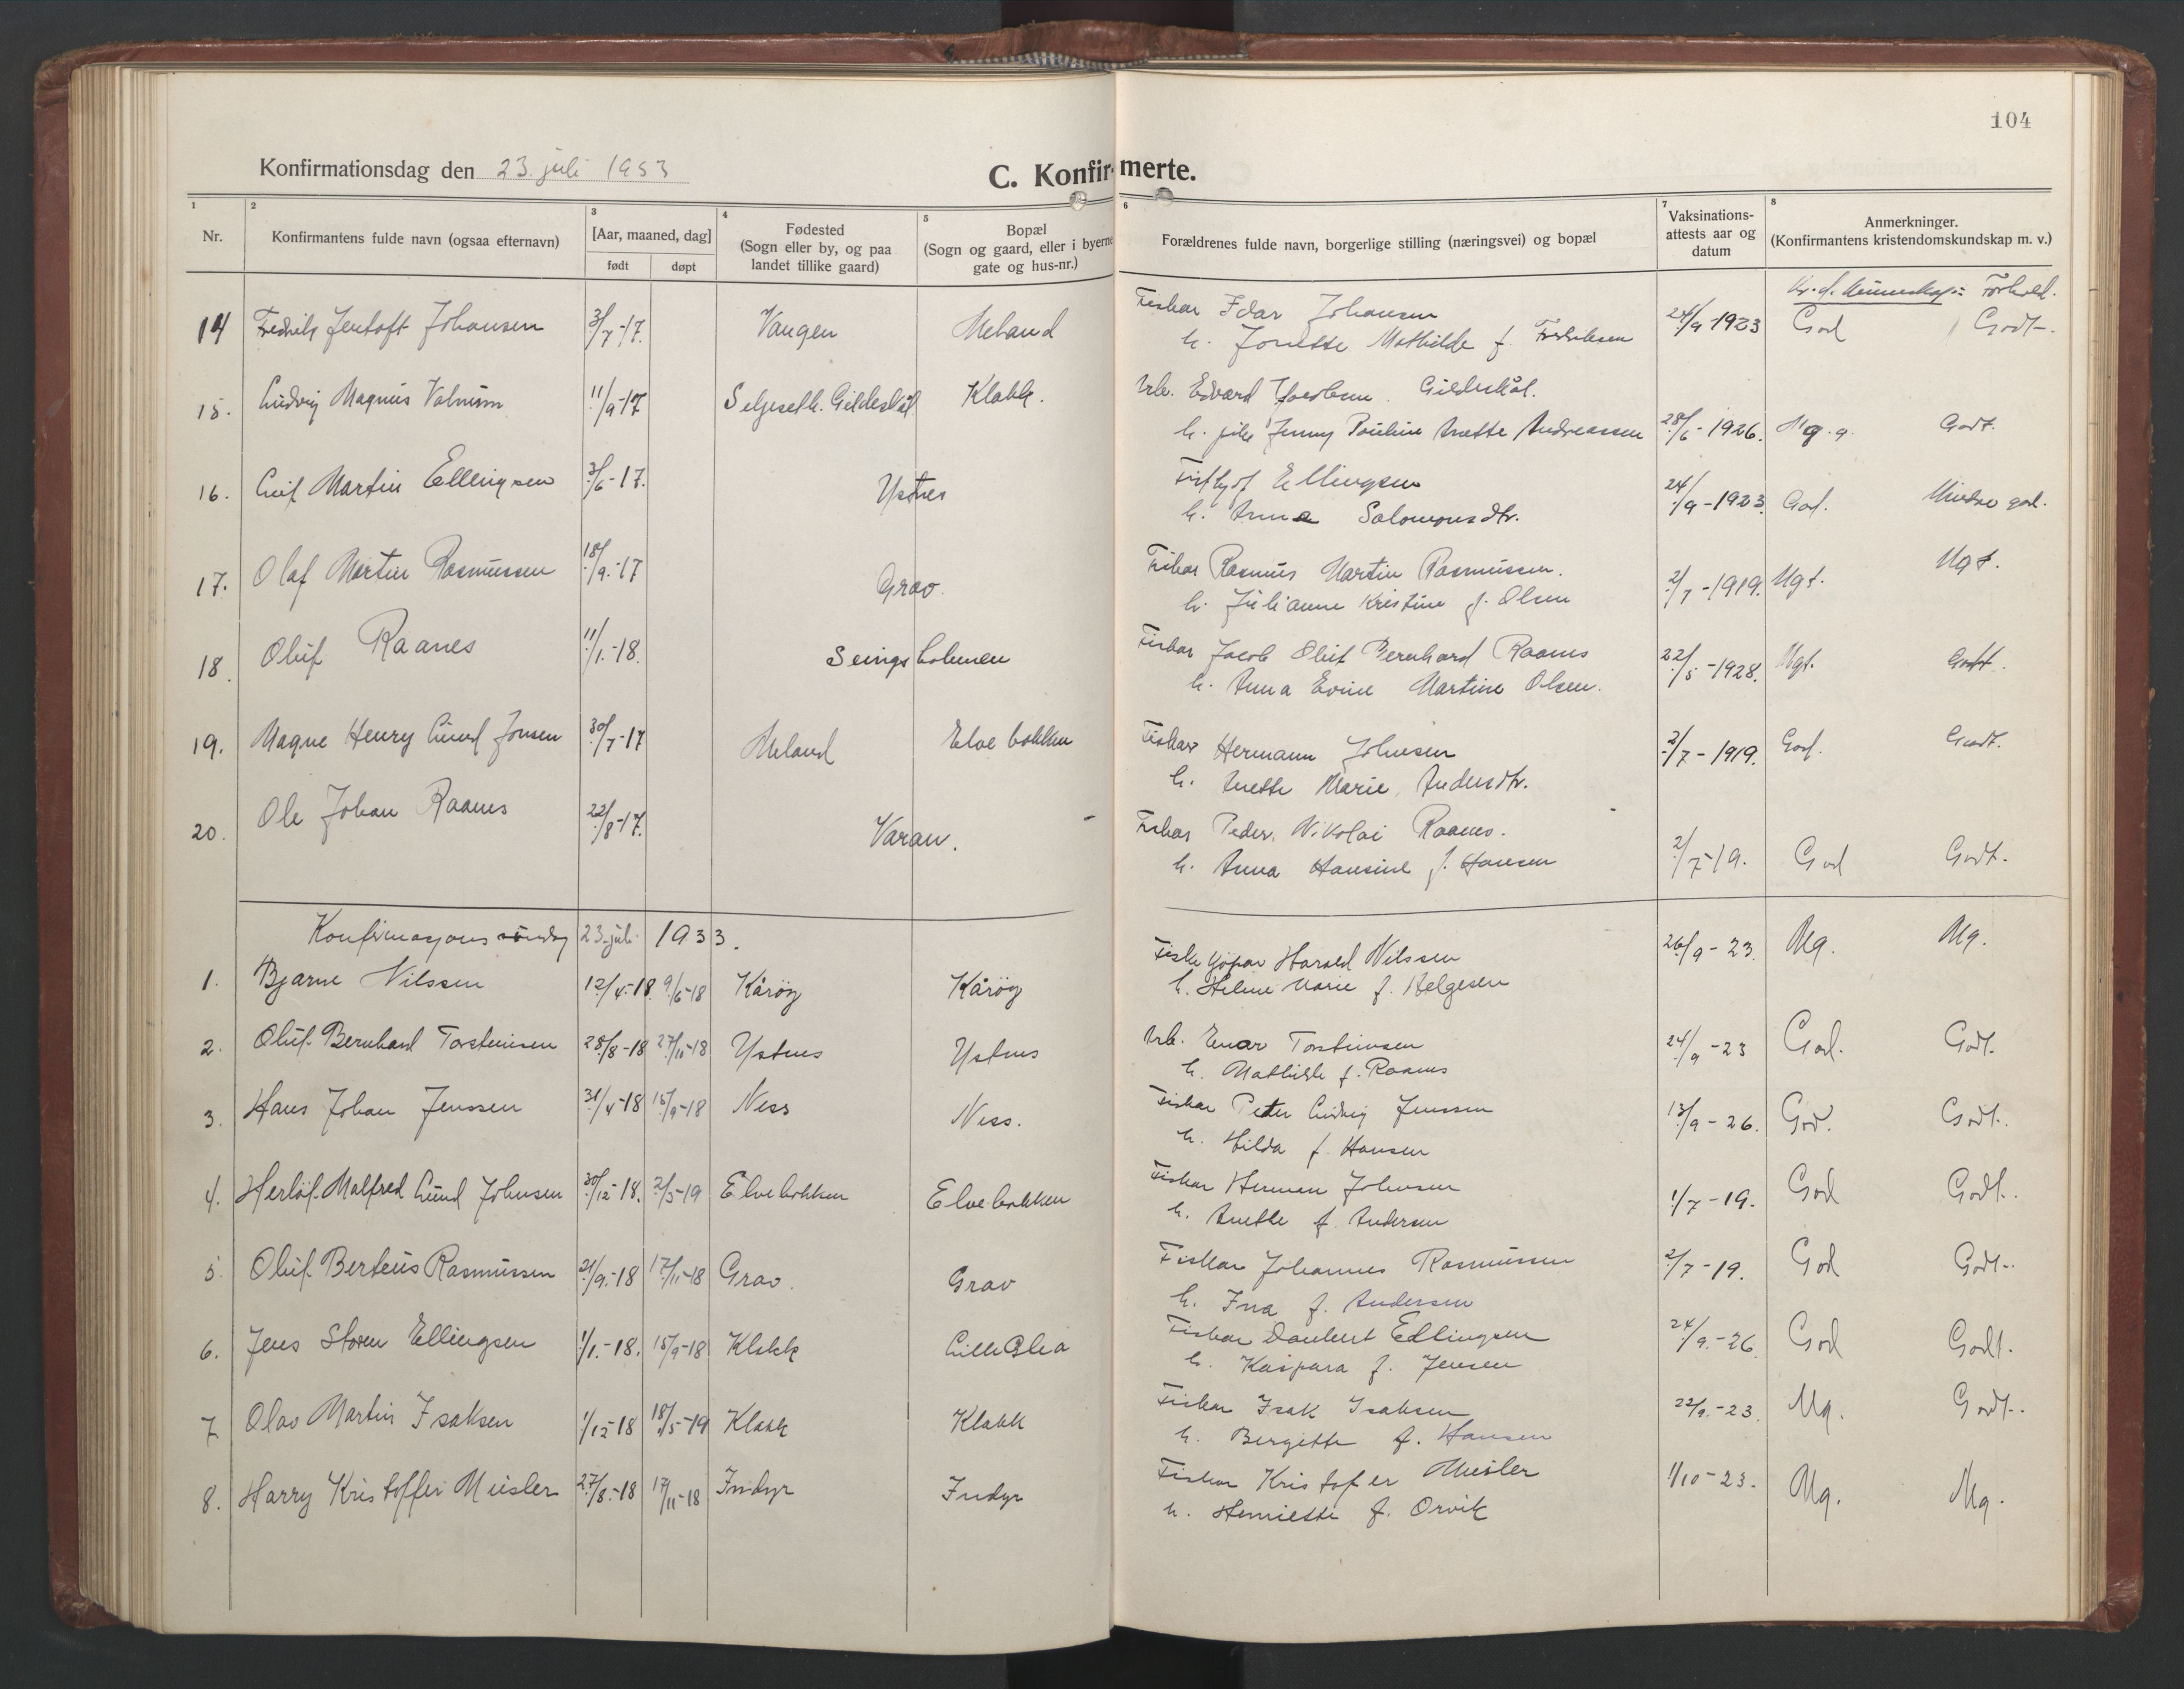 104
Konfirmationsdag den 23. juli 1933
C. Konfirmerte.
1 2 3 4 5 6 7 8
Nr.
Konfirmantens fulde navn (ogsaa efternavn)
[Aar, maaned, dag]
født døpt
Fødested
(Sogn eller by, og paa
landet tillike gaard)
Bopæl
(Sogn og gaard, eller i byerne
gate og hus-nr.)
Forældrenes fulde navn, borgerlige stilling (næringsvei) og bopæl
Vaksinations-
attests aar og
datum
Anmerkninger.
(Konfirmantens kristendomskundskap m. v.)
Kr.d. kunnskap: Forhold.
14 Fredrik Jentoft Johansen 3/7-17. Vangen Meland Fiskar Idar Johansen 24/9 1923 God Godt.
h. Jonette Mathilde f. Fredriksen
15. Ludvig Magnus Valnum 11/9-17 Selseseth. Gildeskål Klakk. Arb. Edvard Jacobsen. Gildeskål.
h. pike Jenny Pauline Anette Andreassen 28/6-1926. Mg. Godt.
16. Leif Martin Ellingsen 3/6-17. Ystnes Frithjof Ellingsen 24/9-1923. God. Mindre god.
h. Anna Salomonsdtr.
17. Olaf Martin Rasmussen 18/9.-17 Grav. Fiskar Rasmus Martin Rasmussen. 2/7-1919. Mgt. Mgt.
h. Julianne Kristine f. Olsen
18. Oluf Raanes 11/1.-18. Seingsholmen Fiskar Jacob Oluf Bernhard Raanes 22/5-1928. Mgt. Godt.
h. Anna Evine Martine Olsen.
19. Magne Henry Lund Jonsen 30/7-17 Meland Elvebakken Fiskar Hermann Johnsen 2/7-1919. God. Godt.
h. Anette Marie Andersdtr.
20. Ole Johan Raanes 22/8-17. Varan. Fiskar Peder Nikolai Raanes. 2/7-19. God Godt.
h. Anna Hansine f. Hansen
Konfirmasjons søndag 23. juli 1933.
1. Bjarne Nilssen 12/4-18. 9/6-18 Kårøy Kårøy Fiskekjøpar Harald Nilssen 26/9-23. Mg. Mg.
h. Helene Marie f. Helgesen
2. Oluf Bernhard Torsteinsen 28/8-18 27/10-18 Ystnes Ystnes Arb. Einar Torsteinsen 24/9-23 God. Godt.
h. Mathilde f. Raanes
3. Hans Johan Jenssen 31/4-18 15/9-18 Ness Ness. Fiskar Peter Ludvig Jenssen 13/9-26. God. Godt.
h. Hilda f. Hansen
4. Herlof Malfred Lund Johnsen 30/12-18. 2/5-19 Elvebakken Elvebakken Fiskar Herman Johnsen 1/7-19. God Godt.
h. Anette f. Andersen
5. Oluf Berteus Rasmussen 21/9.-18 17/11-18 Grav. Grav Fiskar Johannes Rasmussen 2/7-19. God Godt.
h. Ina f. Andersen
6. Jens Storen Ellingsen 1/1.-18. 15/9-18 Klakk Lille Blia Fiskar Danhert Edlingsen 24/9.-26 God Godt.
h. Kaspara f. Jensen
7. Olav Martin Isaksen 1/12-18 18/5-19 Klakk Klakk Fiskar Isak Isaksen 22/9.-23. Mg. Godt.
h. Bergitte f. Hansen
8. Harry Kristoffer Meisler 27/8.-18 17/11-18 Inndyr Inndyr Fiskar Kristofer Meisler 1/10-23. Mg. Mg.
h. Henriette f. Orvik